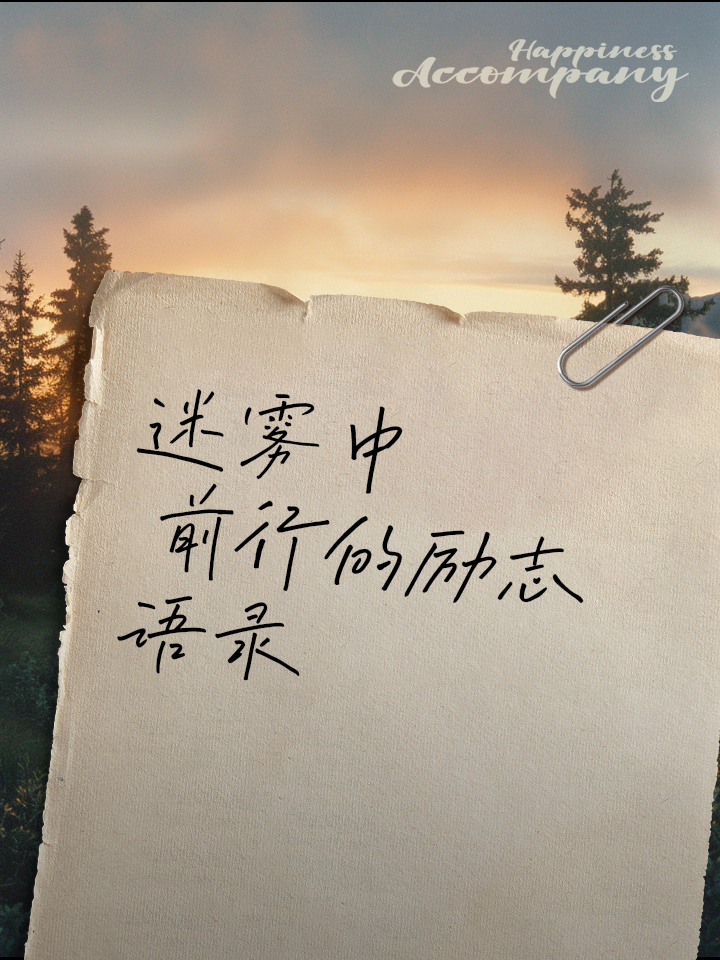 Happiness
Accompany
迷雾中
前行的励志
语录